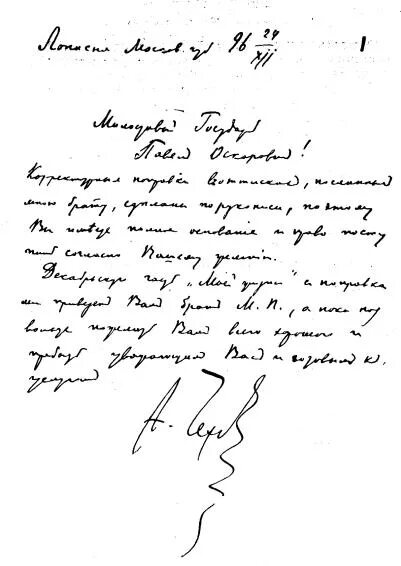 Лопасня Москов. губ. 96 24/XII 1
Милостивый Государь
Павел Оскарович!
Корректурные поправки в оттисках, посланных
мною брату, сделаны по рукописи, поэтому
Вы имеете полное основание и право посту
пить согласно Вашему желанию.
Декабрьскую часть „Моей жизни" с поправка
ми привезет Вам брат М. П., а пока поз
вольте пожелать Вам всего хорошего и
пребыть уважающим Вас и готовым к
услугам
А. Чехов